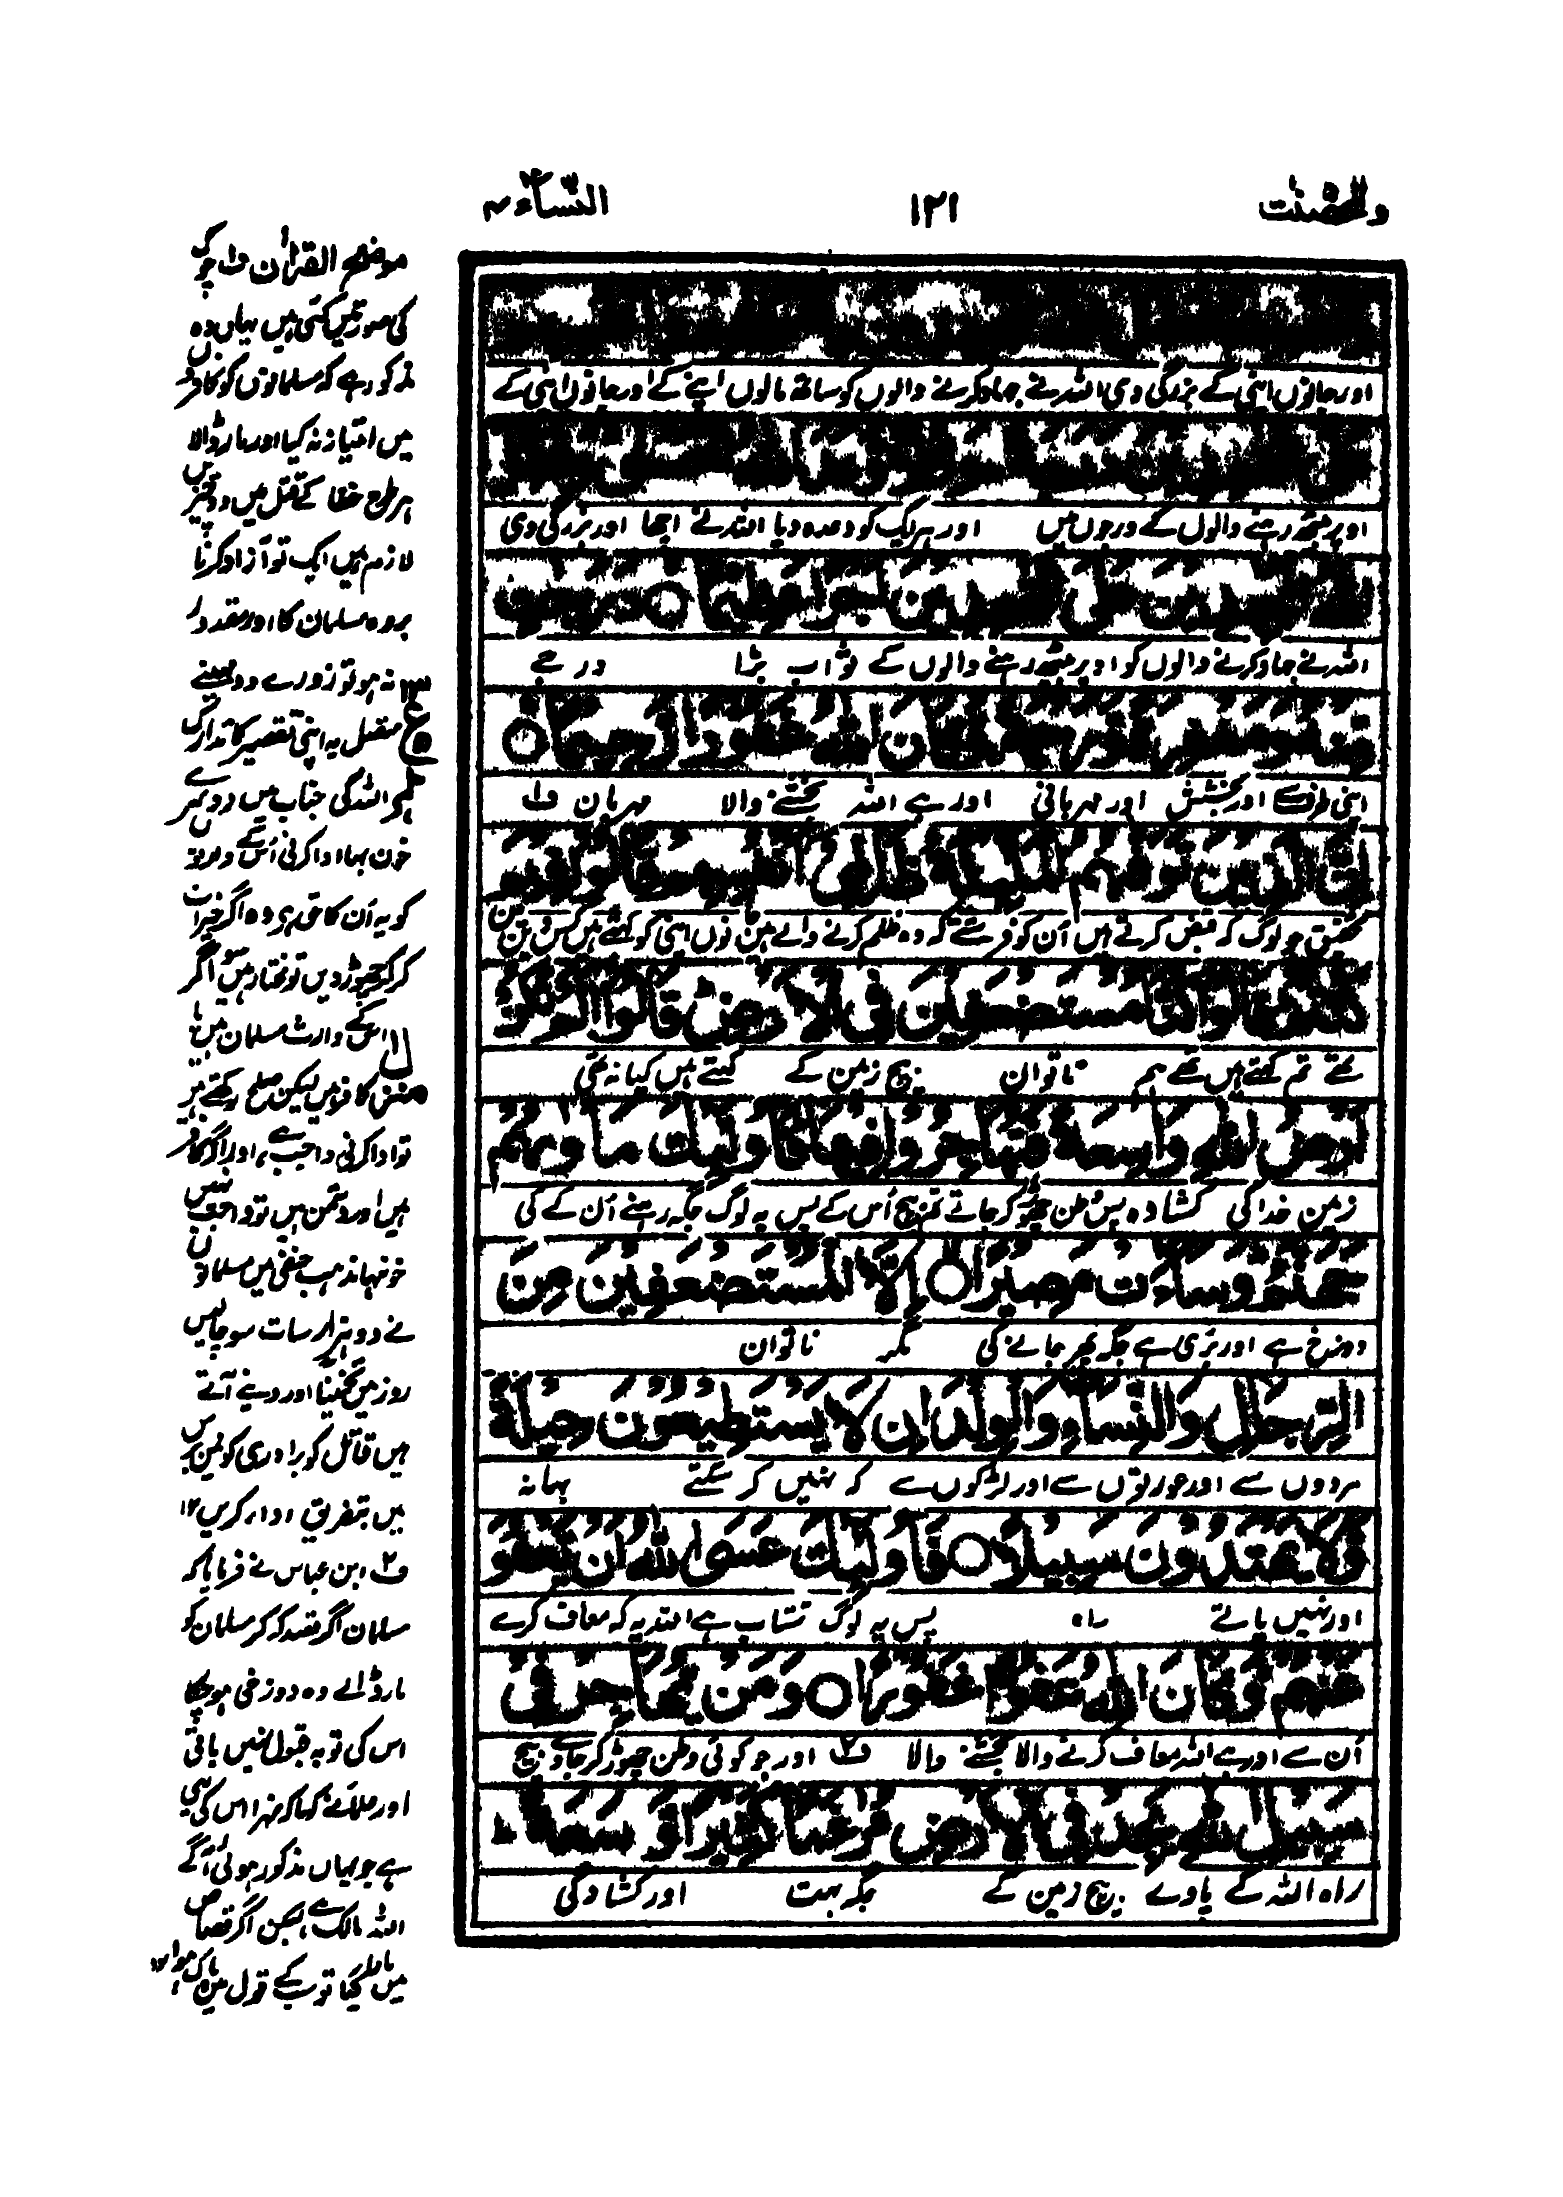 والمحصنت
١٢١
النساء ٤
اور جانوں اپنی کے بزرگی دی اللہ نے جہاد کرنے والوں کو ساتھ مالوں اپنے کے اور جانوں اپنی کے
اوپر بیٹھ رہنے والوں کے درجوں میں اور ہر ایک کو وعدہ دیا اللہ نے اچھا اور بزرگی دی
الله المجهدين على القعدين اجرا عظيما ○ درجت
اللہ نے جہاد کرنے والوں کو اوپر بیٹھ رہنے والوں کے ثواب بڑا درجے
منه ومغفرة ورحمة وكان الله غفورا رحيما ○
اپنی طرف سے اور بخشش اور مہربانی اور ہے اللہ بخشنے والا مہربان ف۱
ان الذين توفهم الملئكة ظالمي انفسهم قالوا فيم
تحقیق جو لوگ کہ قبض کرتے ہیں اُن کو فرشتے کہ وہ ظلم کرنے والے ہیں جانوں اپنی کو کہتے ہیں کس دین میں
كنتم قالوا كنا مستضعفين في الارض قالوا الم تكن
تھے تم کہتے ہیں تھے ہم ناتوان بیچ زمین کے کہتے ہیں کیا نہ تھی
ارض الله واسعة فتهاجروا فيها فاولئك ماوهم
زمین خدا کی کشادہ پس وطن چھوڑ کر جاتے تم بیچ اُس کے پس یہ لوگ جگہ رہنے اُن کے کی
جهنم وساءت مصيرا ○ الا المستضعفين من
دوزخ ہے اور بُری ہے جگہ پھر جانے کی مگر ناتوان
الرجال والنساء والولدان لا يستطيعون حيلة
مردوں سے اور عورتوں سے اور لڑکوں سے کہ نہیں کر سکتے بہانہ
ولا يهتدون سبيلا ○ فاولئك عسى الله ان يعفو
اور نہیں پاتے راہ پس یہ لوگ شتاب ہے اللہ یہ کہ معاف کرے
عنهم وكان الله عفوا غفورا ○ ومن يهاجر في
اُن سے اور ہے اللہ معاف کرنے والا بخشنے والا ف۲ اور جو کوئی وطن چھوڑ کر جاوے بیچ
سبيل الله يجد في الارض مرغما كثيرا وسعة
راہ اللہ کے پاوے بیچ زمین کے جگہ بہت اور کشادگی
موضح القرآن ف۱ چوک
کی صورتیں کئی ہیں یہاں وہ
مذکور ہے کہ مسلمانوں کو کافروں
میں امتیاز نہ کیا اور مار ڈالا
ہر طرح خطا کے قتل میں دو چیزیں
لازم ہیں ایک تو آزاد کرنا
بردہ مسلمان کا اور مقدور
نہ ہو تو روزے دو مہینے
متصل یہ اپنی تقصیر کا تدارک
ہے اللہ کی جناب میں دوسرے
خون بہا ادا کرنی اُس کے وارثوں
کو یہ اُن کا حق ہے وہ اگر خیرات
کر کے چھوڑ دیں تو مختار ہیں سو اگر
اسکے وارث مسلمان ہیں یا
کافر ہیں لیکن صلح رکھتے ہیں
تو ادا کرنی واجب ہے اور اگر کافر
ہیں اور دشمن ہیں تو واجب نہیں
خونبہا مذہب حنفی میں مسلمانوں
نے دو ہزار سات سو چالیس
روز میں تخمیناً اور دینے آتے
ہیں قاتل کو برادری کو تین برس
میں بتفریق ادا کریں ١٢
ف۲ ابن عباس نے فرمایا کہ
مسلمان اگر قصد کر کر مسلمان کو
مار ڈالے وہ دوزخی ہو چکا
اس کی توبہ قبول نہیں باقی
اور علما نے کہا کہ سزا اس کی یہی
ہے جو یہاں مذکور ہوئی آگے
اللہ مالک ہے لیکن اگر قصاص
میں مارا گیا تو سب کے قول میں پاک ہوا ١٢